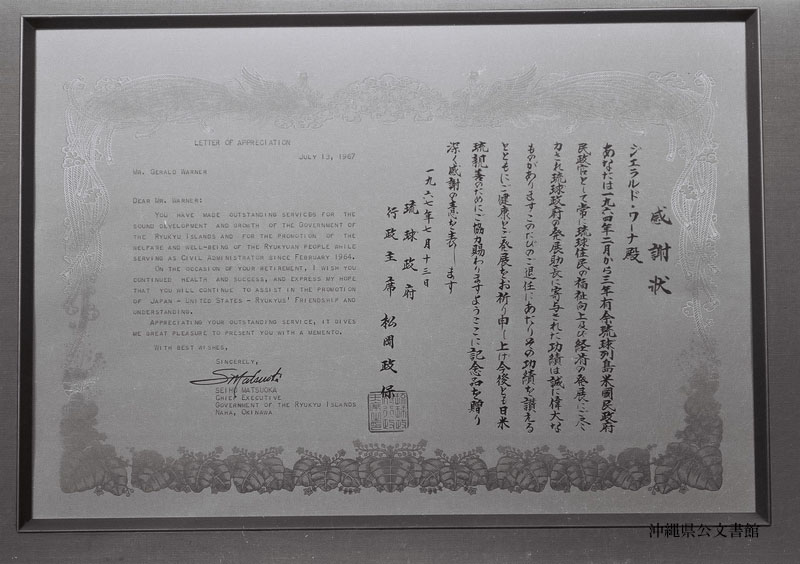 LETTER OF APPRECIATION
JULY 13, 1967
MR. GERALD WARNER
DEAR MR. WARNER:
YOU HAVE MADE OUTSTANDING SERVICES FOR THE
SOUND DEVELOPMENT AND GROWTH OF THE GOVERNMENT OF
THE RYUKYU ISLANDS AND FOR THE PROMOTION OF THE
WELFARE AND WELL-BEING OF THE RYUKYUAN PEOPLE WHILE
SERVING AS CIVIL ADMINISTRATOR SINCE FEBRUARY 1964.
ON THE OCCASION OF YOUR RETIREMENT, I WISH YOU
CONTINUED HEALTH AND SUCCESS, AND EXPRESS MY HOPE
THAT YOU WILL CONTINUE TO ASSIST IN THE PROMOTION
OF JAPAN - UNITED STATES - RYUKYUS' FRIENDSHIP AND
UNDERSTANDING.
APPRECIATING YOUR OUTSTANDING SERVICE, IT GIVES
ME GREAT PLEASURE TO PRESENT YOU WITH A MEMENTO.
WITH BEST WISHES,
SINCERELY,
S Matsuoka
SEIHO MATSUOKA
CHIEF EXECUTIVE
GOVERNMENT OF THE RYUKYU ISLANDS
NAHA, OKINAWA
感謝状
ジエラルド・ワーナ殿
あなたは一九六四年二月から三年有余琉球列島米國民政府
民政官として常に琉球住民の福祉向上及び経済の発展に尽
力され琉球政府の発展助長に寄与された功績は誠に偉大な
ものがありますこのたびのご退任にあたりその功績を讃える
とともにご健康とご発展をお祈り申し上げ今後とも日米
琉親善のためにご協力賜わりますようここに記念品を贈り
深く感謝の意を表します
一九六七年七月十三日
琉球政府
行政主席 松岡政保
沖縄県公文書館